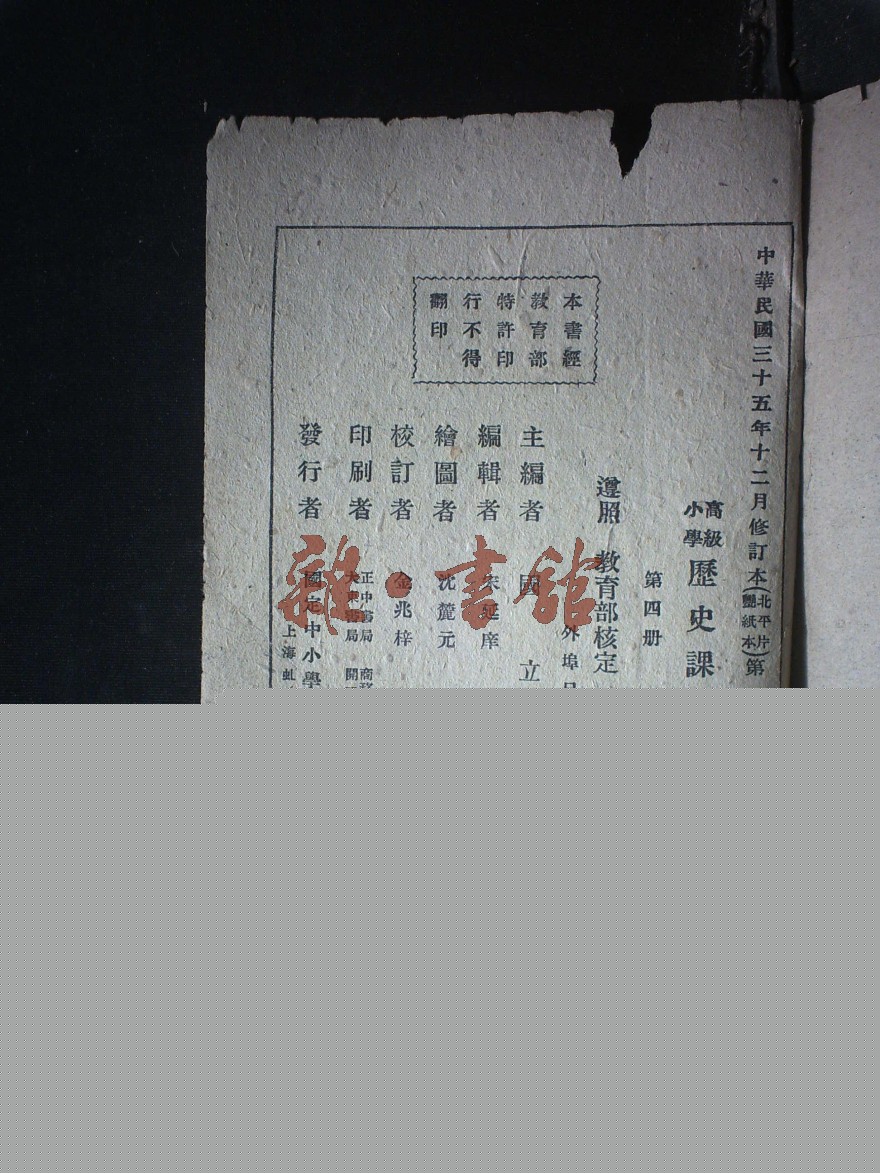 中華民國三十五年十二月修訂本(北平片豔紙本)第
高級小學歷史課
第四册
遵照教育部核定
外埠
主編者 國立
編輯者 宋延庠
繪圖者 沈麓元
校訂者 金兆梓
印刷者 正中書局 商務 大東書局 開
發行者 國定中小學
上海虬
本書經
教育部
特許印
行不得
翻印
雜·書館